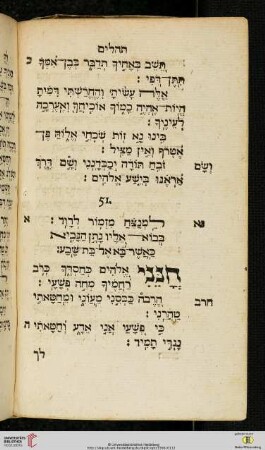 תהלים
כ תשב באחיך תדבר בבן־אמך
תתן־דפי :
אלה עשית והחרשתי דמית
היות־אהיה כמוך אוכיחך ואערכה
לעיניך :
בינו נא זאת שכחי אלוה פן־
אטרף ואין מציל :
ושם זבח תודה יכבדנני ושם דרך
אראנו בישע אלהים :
51.
נא למנצח מזמור לדוד : א
בבוא־אליו נתן הנביא
כאשר־בא אל־בת־שבע :
חנני אלהים כחסדך כרב
רחמיך מחה פשעי :
הרב הרבה כבסני מעוני ומחטאתי
טהרני :
כי פשעי אני אדע וחטאתי ה
נגדי תמיד :
לך
UNIVERSITÄTS-
BIBLIOTHEK
HEIDELBERG
© Universitätsbibliothek Heidelberg